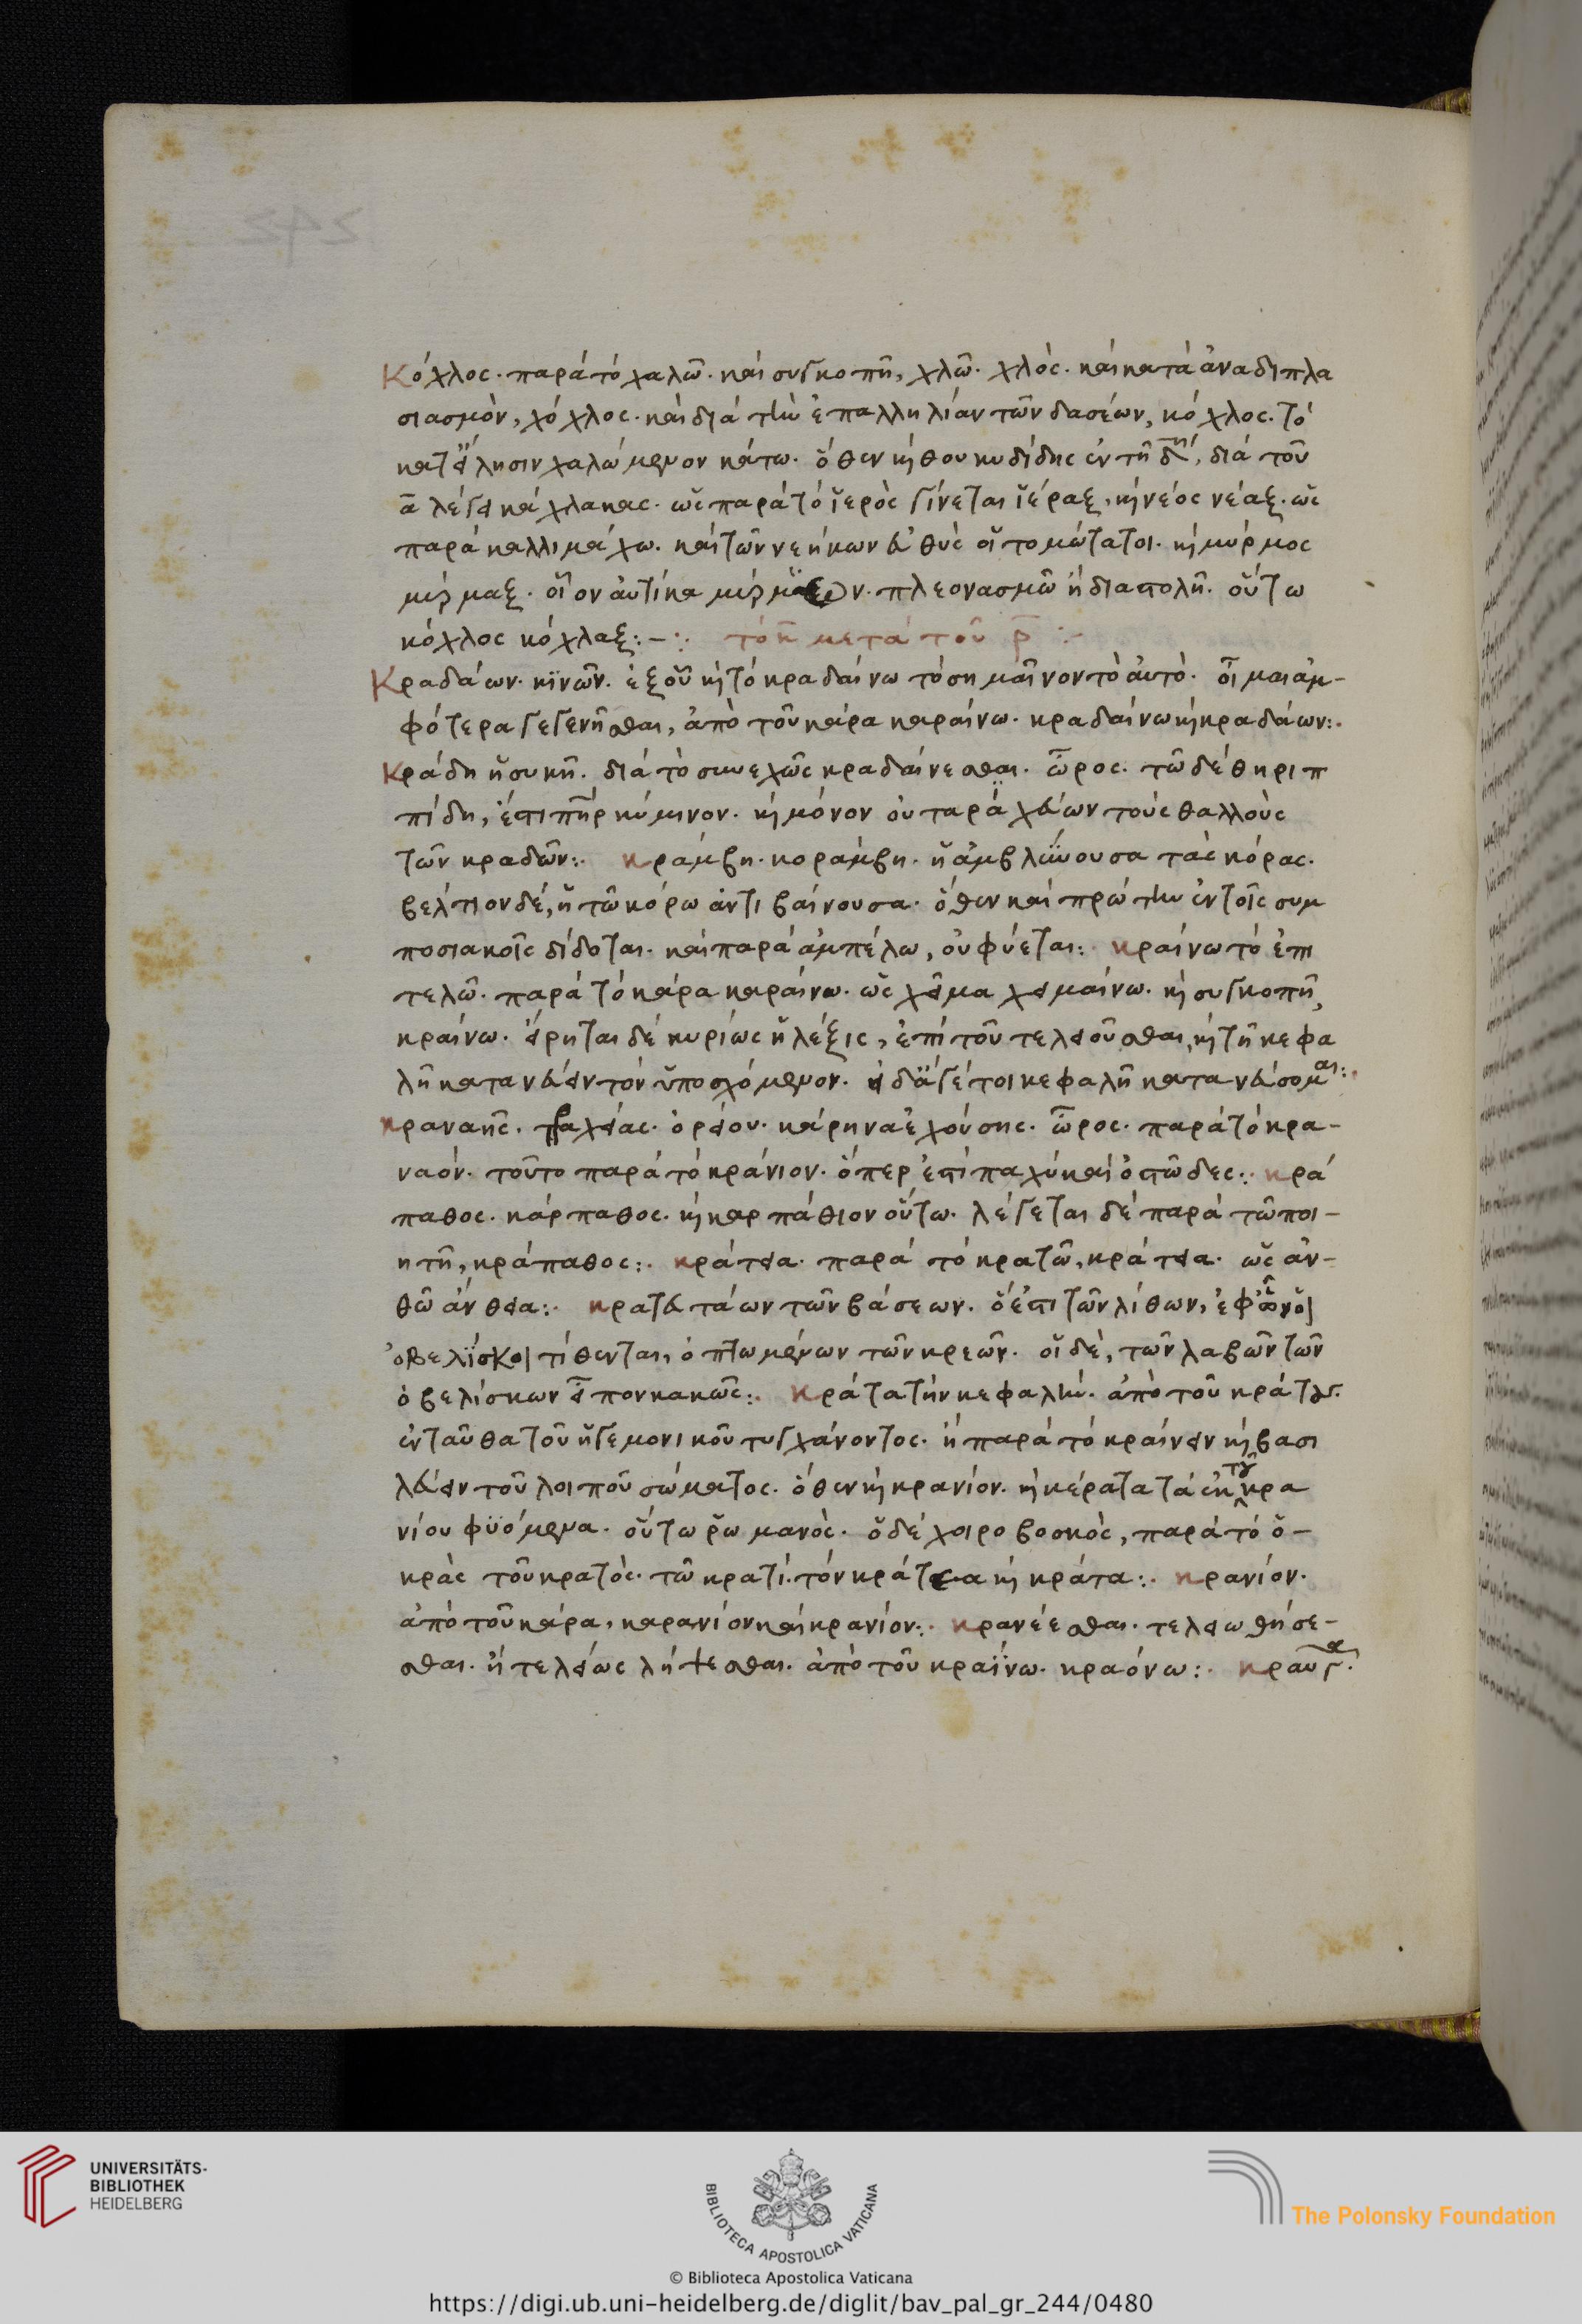 Κόχλος· παρὰ τὸ χαλῶ· καὶ συγκοπῆ, χλῶ· χλὸς· καὶ κατὰ ἀναδιπλα
σιασμὸν, χόχλος· καὶ διὰ τὴν ἐπαλληλίαν τῶν δασέων, κόχλος· τὸ
κατείλησιν χαλώμενον κάτω· ὅθεν καὶ θουκυδίδης ἐν τῆ δ, διὰ τοῦ
ᾱ λέγει κάχλακας· ὡς παρὰ τὸ ἱερὸς γίνεται ἱέραξ, καὶ νέος νέαξ· ὡς
παρὰ καλλιμάχω· καὶ τῶν νεήκων εὐθὺς οἱ τομώτατοι· καὶ μύρμος
μύρμαξ· οἷον αὐτίκα πλεονασμῶ ἢ διαστολῆ· οὕτω
κόχλος κόχλαξ:–:· τὸ κ μετὰ τοῦ ρ :–
Κραδάων· κινῶν· ἐξ οὗ καὶ τὸ κραδαίνω τὸ σημαῖνον τὸ αὐτὸ· οἶμαι ἀμ–
φότερα γεγενῆσθαι, ἀπὸ τοῦ κάρα καραίνω· κραδαίνω καὶ κραδάων:·
Κράδη ἡ συκῆ· διὰ τὸ συνεχῶς κραδαίνεσθαι· ὦρος· τῶ δέ θηριπ
πίδη, ἐστι πῆρ κύμινον· καὶ μόνον οὐ ταράχεύων τοὺς θαλλοὺς
τῶν κραδῶν:· κράμβη· κοράμβη· ἡ ἀμβλύνουσα τὰς κόρας·
βέλτιον δέ, ἡ τῶ κόρω ἀντιβαίνουσα· ὅθεν καὶ πρώτην ἐν τοῖς συμ
ποσιακοῖς δίδοται· καὶ παρὰ ἀμπέλω, οὐ φύεται:· κραίνω τὸ ἐπι
τελῶ· παρὰ τὸ κάρα καραίνω· ὡς χεῖμα χειμαίνω· καὶ συγκοπῆ,
κραίνω· εἴρηται δὲ κυρίως ἡ λέξις, ἐπὶ τοῦ τελειοῦσθαι, καὶ τῆ κεφα
λῆ κατανεύειν τὸν ὑποσχόμενον· εἰ δ' ἄγέ τοι κεφαλῆ κατανεύσομαι:·
κραναῆς· τραχείας· ὀρείου· κάρηνα ἐχούσης· ὦρος· παρὰ τὸ κρα–
ναόν· τοῦτο παρὰ τὸ κράνιον· ὅπερ ἐστὶ παχὺ καὶ ὀστῶδες:· κρά
παθος· κάρπαθος· καὶ καρπάθιον οὕτω· λέγεται δὲ παρὰ τῶ ποι–
ητῆ, κράπαθος:· κράτεια· παρὰ τὸ κρατῶ, κράτεια· ὡς ἀν–
θῶ ἄνθεια:· κρατευτάων τῶν βάσεων· ὅ ἐστι τῶν λίθων, ἐφ' ὧν οἱ
ὀβελίσκοι τίθενται, ὀπτωμένων τῶν κρεῶν· οἱ δὲ, τῶν λαβῶν τῶν
ὀβελίσκων εἶπον κακῶς:· κράτα τὴν κεφαλὴν· ἀπὸ τοῦ κράτους·
ἐνταῦθα τοῦ ἡγεμονικοῦ τυγχάνοντος· ἢ παρὰ τὸ κραίνειν καὶ βασι
λεύειν τοῦ λοιποῦ σώματος· ὅθεν καὶ κρανίον· καὶ κέρατα τὰ ἐκ τοῦ κρα
νίου φυόμενα· οὕτω ῥωμανὸς· ὁ δὲ χοιροβοσκὸς, παρὰ τὸ ὁ–
κρὰς τοῦ κρατὸς· τῶ κρατί· τὸν κράτα καὶ κράτα:· κρανίον·
ἀπὸ τοῦ κάρα, καρανίον καὶ κρανίον:· κρανέεσθαι· τελειωθήσε–
σθαι· ἢ τελείως λήψεσθαι· ἀπὸ τοῦ κραίνω· κραόνω:· κραυγ

UNIVERSITÄTS-
BIBLIOTHEK
HEIDELBERG
BIBLIOTECA APOSTOLICA VATICANA
The Polonsky Foundation
© Biblioteca Apostolica Vaticana
https://digi.ub.uni-heidelberg.de/diglit/bav_pal_gr_244/0480